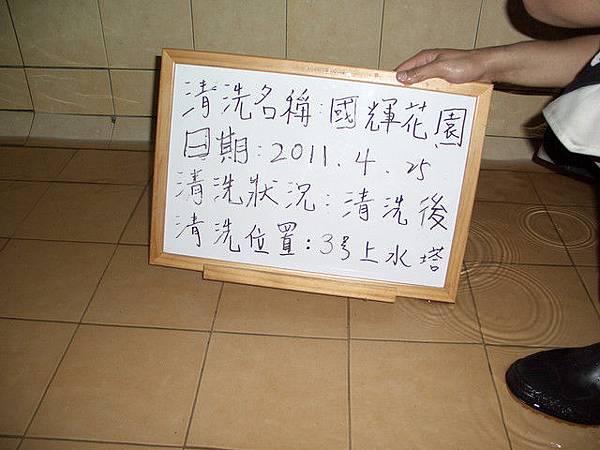 清洗名稱:國輝花園
日期:2011.4.25
清洗狀況:清洗後
清洗位置:3号上水塔